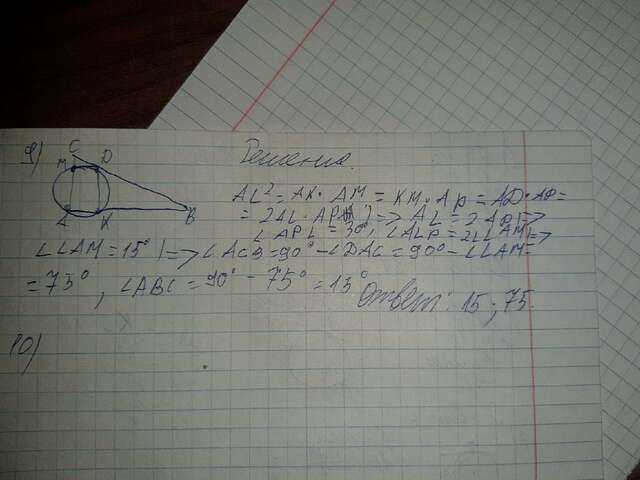 9)
C
M D
A K
B
Решение.
AL² = AK · AM = KM · AP = AD · AP =
= 2AL · AP) => AL = 2AP) =>
∠APL = 30°, ∠ALP = 2∠LAM) =>
∠LAM = 15° | => ∠ACB = 90° - ∠DAC = 90° - ∠LAM =
= 75°, ∠ABC = 90° - 75° = 15°
Ответ: 15; 75.
10)